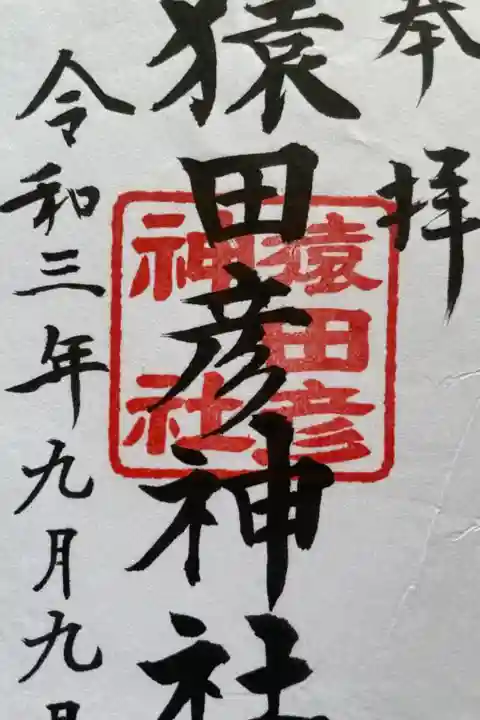 奉拝
猿田彦神社
猿田彦
神社
令和三年九月九日